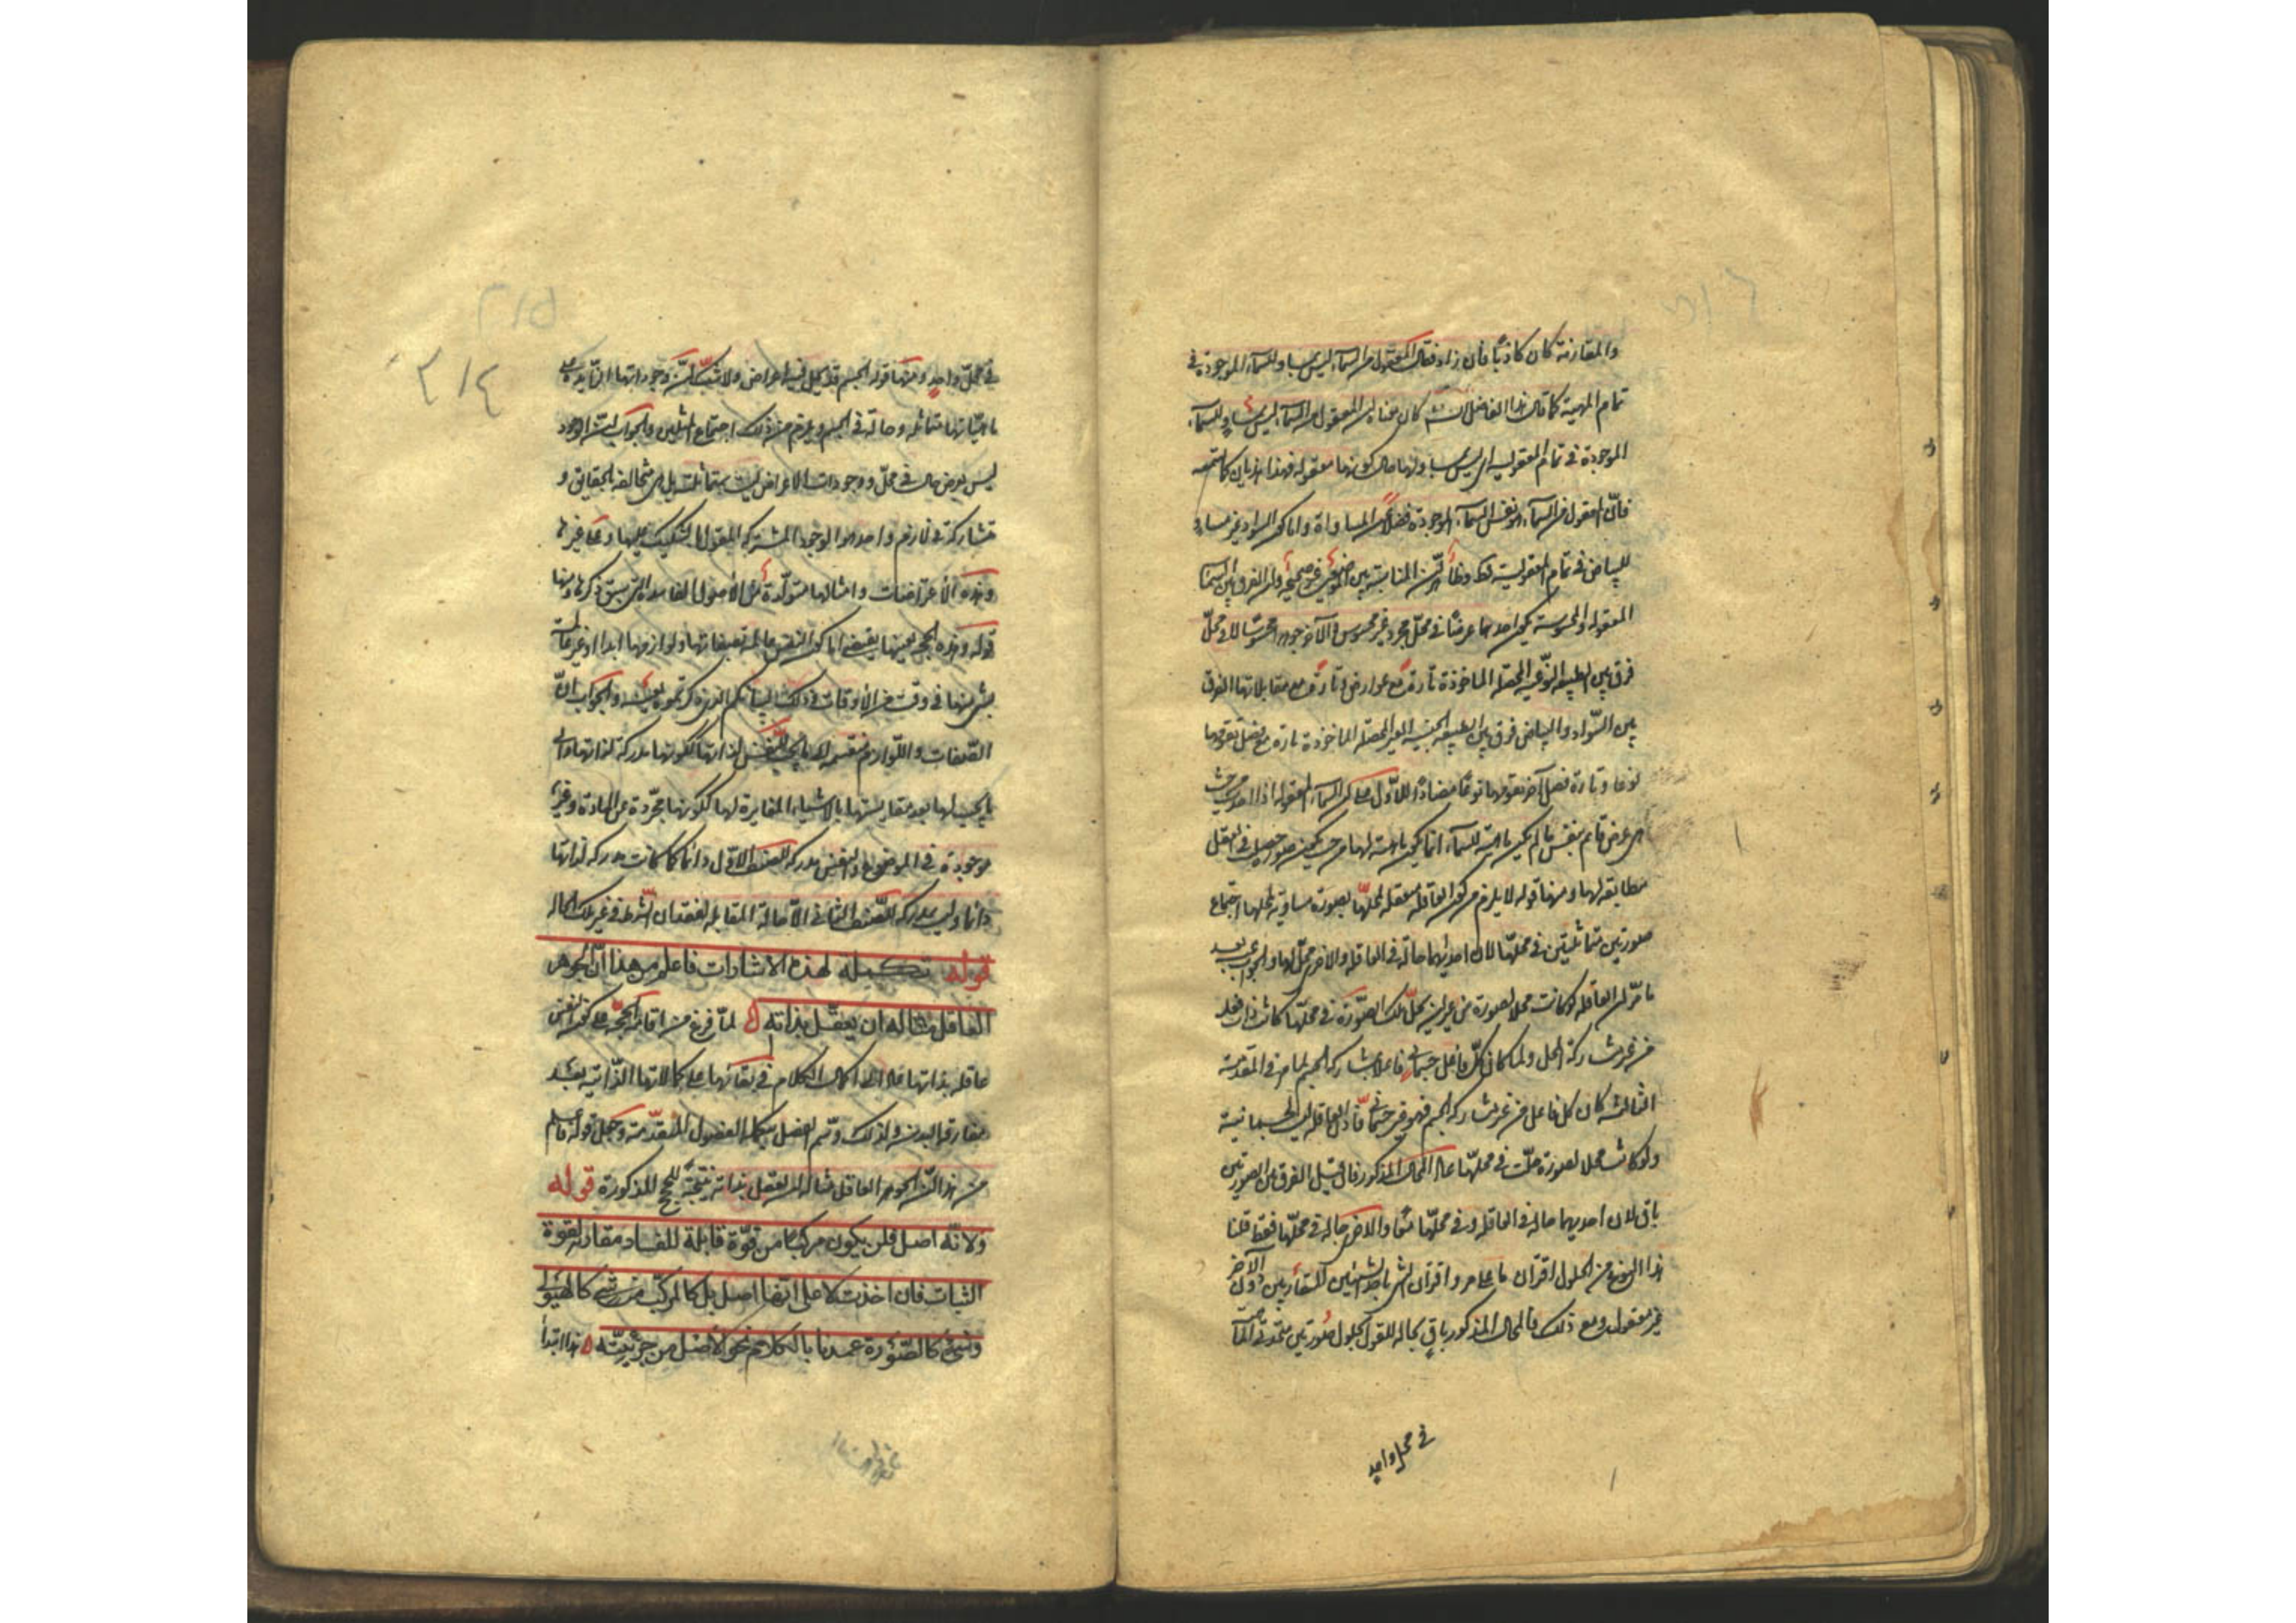 والمقارنة كان كاذبا فان زاد فقال المعقول من السماء ليس بمساو للسماء الموجودة في
تمام المهية كما قال هذا الفاضل كان معناه ان المعقول من السماء ليس بمساو للسماء
الموجودة في تمام المعقولية اي ليس بمساو لها حال كونها معقولة فهذا هذيان كما تسمعه
فان المعقول من السماء هو نفس السماء الموجودة فضلا عن المساواة واما كون السواد غير مساو
للبياض في تمام المعقولية غلط وظاهر ان المناسبة بين غير صحيحة ولان الفرق بين السماء
المعقولة والمحسوسة بكون احدهما عرضا في محل مجرد غير محسوس والآخر جوهرا محسوسا لا في محل
فرق بين الطبيعة النوعية المحصلة الماخوذة تارة مع عوارض وتارة مع مقابلاتها والفرق
بين السواد والبياض فرق بين الطبيعة الجنسية الغير المحصلة الماخوذة تارة مع فصل يقومها
نوعا وتارة مع فصل آخر يقومها نوعا مضادا للاول على ان السماء المعقولة اذا اخذت من حيث
هي عرض قائم بنفس ما لم يكن ماهية للسماء انما يكون ماهية لها من حيث يكون صورة حصلت في العقل
مطابقة لها ومنها قوله لا يلزم من كون العاقلة متعقلة لمحلها بصورة مساوية لمحلها اجتماع
صورتين متماثلتين في محلها لان احديهما حالة في العاقلة والاخرى محل لها والجواب بعد
ما مر ان العاقلة لو كانت محلا لصورة من غير ان تحل تلك الصورة في محلها كانت ذات فعل
من غير مشاركة المحل ولما كان كل فاعل جسماني فاعلا بمشاركة الجسم لما مر في المقدمة
الثالثة كان كل فاعل من غير مشاركة الجسم فهو غير جسماني فاذا العاقلة ليست بجسمانية
ولو كانت محلا لصورة حلت في محلها عاد المحال المذكور فان قيل الفرق بين الصورتين
باق لان احديهما حالة في العاقلة وفي محلها معا والاخرى حالة في محلها فقط قلنا
هذا النوع من الحلول اقتران ما على ما مر واقتران الشيء باحد الشيئين المتقارنين دون الآخر
غير معقول ومع ذلك فالمحال المذكور باق بحاله للقول بحلول صورتين متحدتي الماهية
في محل واحد
٣١٥
٣١٤
في محل واحد ومنها قوله الجسم قد يحل فيه اعراض ولا شك ان وجوداتها الزائدة على
ماهياتها متماثلة وحالة في الجسم ويلزم من ذلك اجتماع المثلين والجواب ان الوجود
ليس بعرض حال في محل ووجودات الاعراض ليست بمتماثلة بل هي متخالفة بالحقايق و
متشاركة في لازم واحد هو الوجود المشترك المقول بالتشكيك عليها وعلى غيرها
وهذه الاعتراضات وامثالها متولدة من الاصول الفاسدة التي سبق ذكرها ومنها
قوله وهذه الحجة بعينها يقتضي اما كون النفس عالمة بصفاتها ولوازمها ابدا او غير عالمة
بشيء منها في وقت من الاوقات وذلك لبيانكم الذي ذكرتموه بعينه والجواب ان
الصفات واللوازم منقسمة الى ما يجب للنفس لذاتها ككونها مدركة لذاتها والى
ما يجب لها بعد مقايستها بالاشياء المغايرة لها ككونها مجردة عن المادة وغير
موجودة في الموضوع والنفس مدركة للصنف الاول دائما كما كانت مدركة لذاتها
دائما وليست مدركة للصنف الثاني الا حالة المقايسة لفقدان الشرط في غير تلك الحالة
قوله تكملة لهذه الاشارات فاعلم من هذا ان الجوهر
العاقل منا له ان يعقل بذاته ۵ لما فرغ من اقامة الحجة على كون النفس
عاقلة بذاتها عاد الى اكمال الكلام في بقائها على كمالاتها الذاتية بعد
مفارقة البدن ولذلك وسم الفصل بتكملة الفصول المتقدمة وجعل قوله فاعلم
من هذا ان الجوهر العاقل منا له ان يعقل بذاته نتيجة للحجج المذكورة قوله
ولانه اصل فلن يكون مركبا من قوة قابلة للفساد مقارنة لقوة
الثبات فان اخذت لا على انها اصل بل كالمركب من شيء كالهيولى
وشيء كالصورة عمدنا بالكلام نحو الاصل من جزئيه ۵ هذا ابتدا